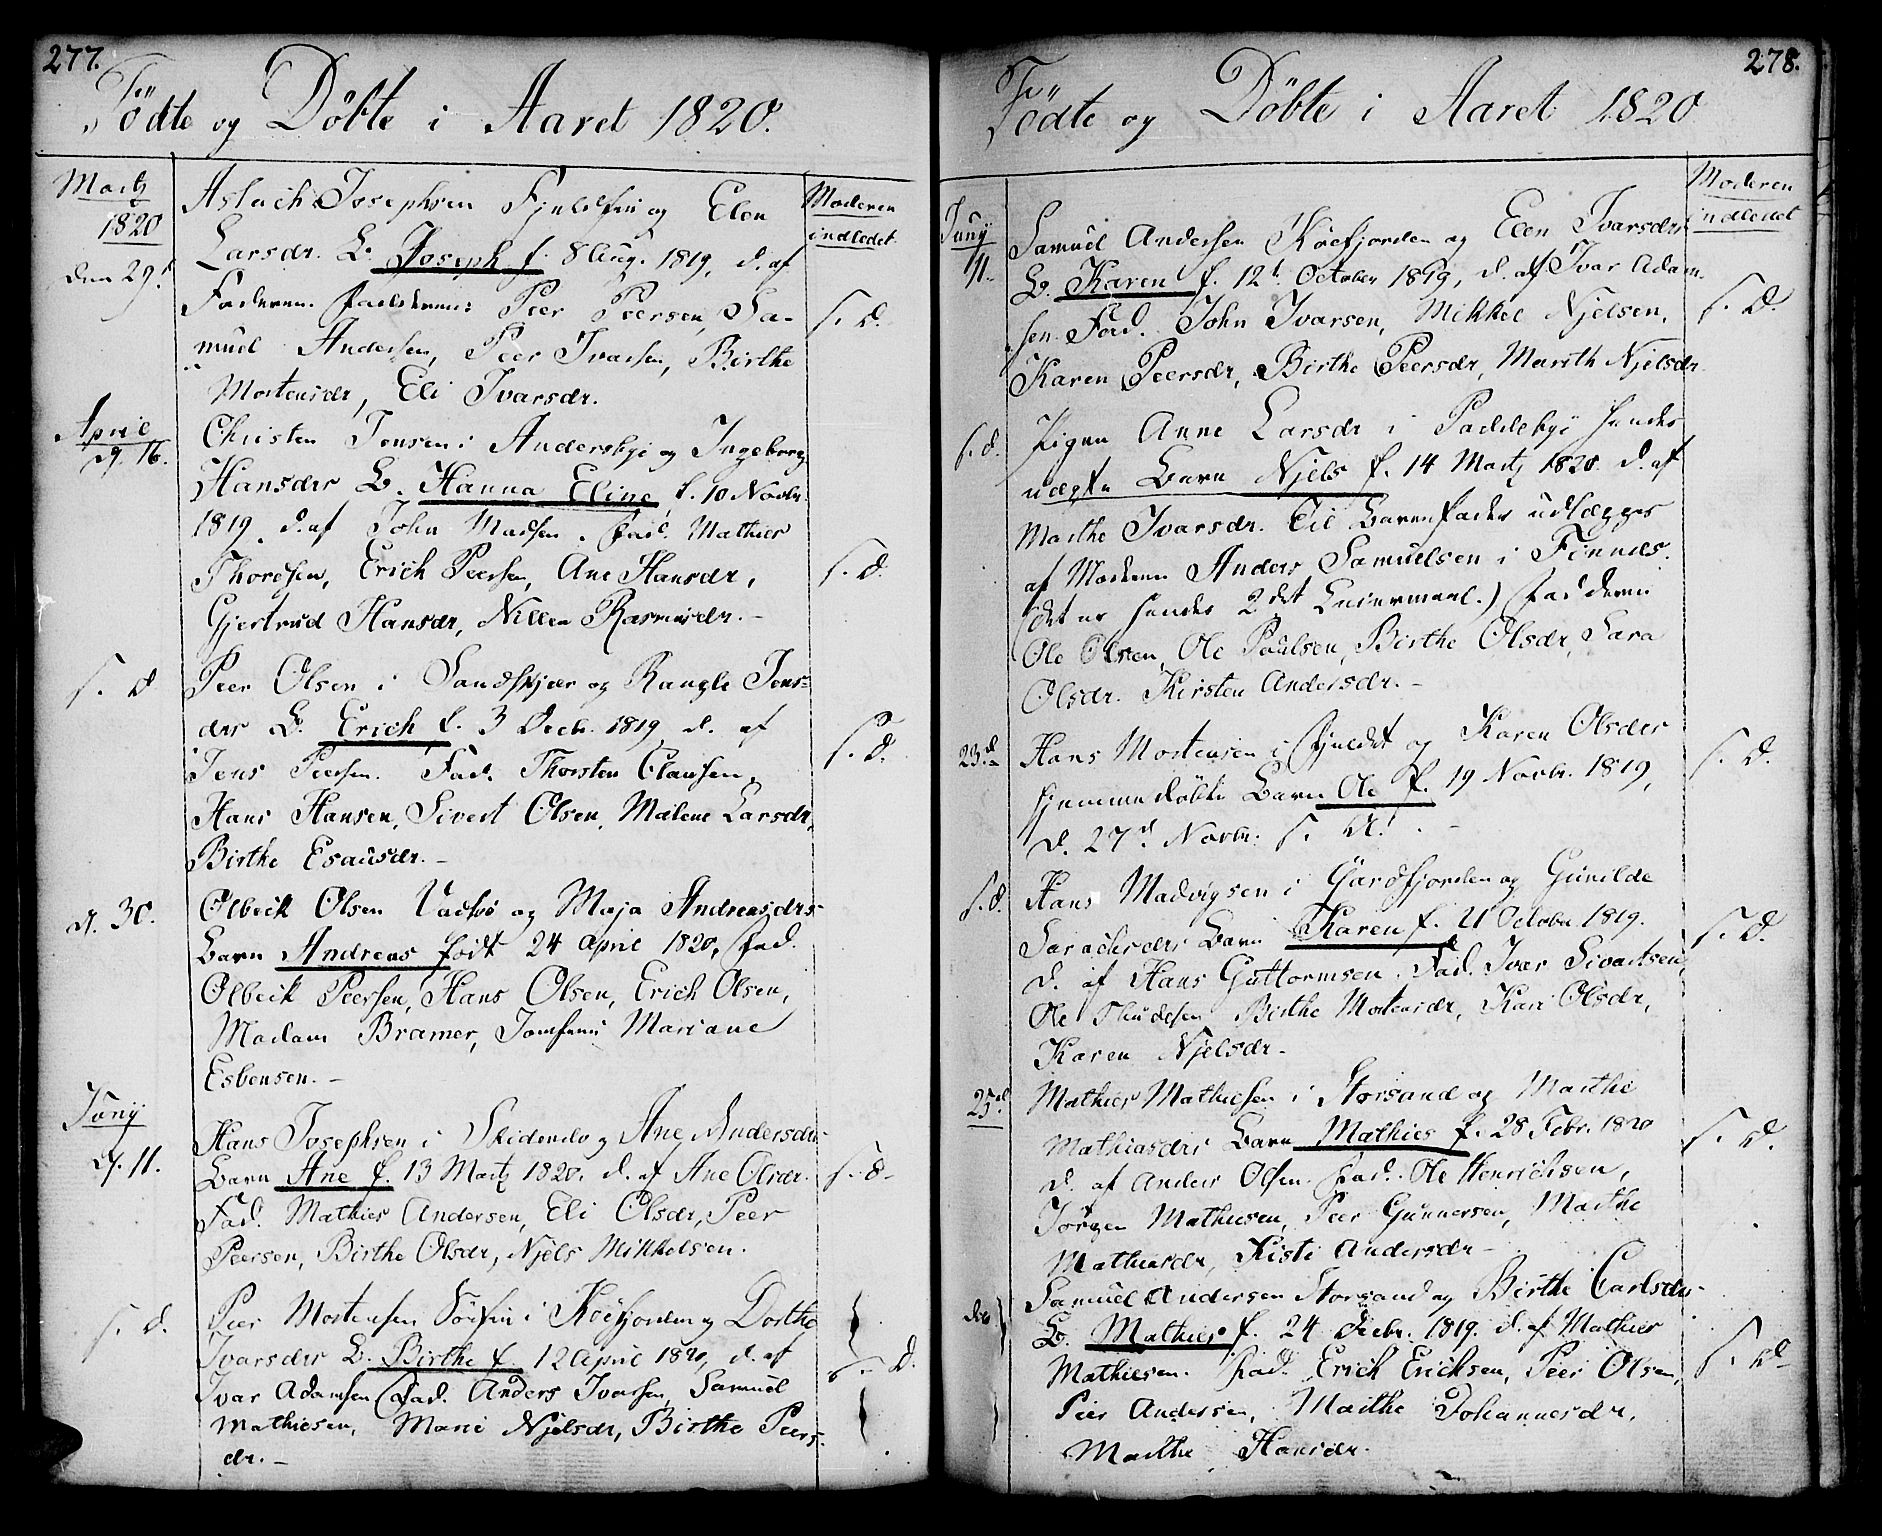 277.
Födte og Döbte i Aaret 1820.
Martz
1820
den 29d
Moderen
indledet
Aslach Josephsen Fjeldfin og Elen
Larsdr. B. Joseph f. 8 Aug. 1819, d. af
Faderen. Fadderne: Peer Peersen, Sa-
muel Andersen, Peer Ivarsen, Birthe
Mortensdr, Eli Ivarsdr.
s. d.
April
d. 16.
Christen Jensen i Andersbye og Ingeborg
Hansdtr B. Hanna Eline, f. 10 Novbr.
1819. d. af John Madsen. Fad. Mathies
Thordsen, Erich Peersen, Ane Hansdr,
Gjertrud Hansdr, Nillen Rasmusdr. -
s. d.
s. d.
Peer Olsen i Sandskjær og Rangle Jens-
dtr B. Erich f. 3 Decbr. 1819 d. af
Jens Peersen. Fad. Thorsten Clausen,
Hans Hansen, Sivert Olsen, Malene Larsdr,
Birthe Esausdr. -
s. d.
d. 30.
Olbeck Olsen Vadsöe og Maja Andreasdtrs
Barn Andreas födt 24 April 1820, Fad.
Olbeck Peersen, Hans Olsen, Erich Olsen,
Madam Bramer, Jomfrue Mariane
Esbensen. -
Junij
d. 11.
Hans Josephsen i og Ane Andersdtr
Barn Ane f. 13 Martz 1820. d. af Ane Olsdr.
Fad. Mathies Andersen, Eli Olsdr, Peer
Peersen, Birthe Olsdr, Njels Mikkelsen.
s. d.
s. d.
Peer Mortensen Söefin i Köefjorden og Dorthe
Ivarsdtr B. Birthe f. 12 April 1820, d. af
Ivar Adamsen Fad. Anders Ivarsen, Samuel
Mathiesen, Marie Njelsdr, Birthe Peers-
dr. -
s. d.
278.
Födte og Döbte i Aaret 1820
Moderen
indledet
Junij
11.
Samuel Andersen Köefjorden og Elen Ivarsdtr
B. Karen f. 12t October 1819, d. af Ivar Adam-
sen. Fad. John Ivarsen, Mikkel Njelsen,
Karen Peersdr, Birthe Peersdr, Marith Njelsdr
s. d.
s. d.
Pigen Anne Larsdr i Paddebye hendes
uægte Barn Njels f. 14 Martz 1820. d. af
Marthe Ivarsdr. Til Barnefader udlægges
af Moderen Anders Samuelsen i Finnæs.
(det er hendes 2det Leiermaal.) Fadderne
Ole Olsen, Ole Paulsen, Birthe Olsdr, Sara
Olsdr. Kirsten Andersdr. -
23d
Hans Mortensen i Fjeldet og Karen Olsdtr
hjemmedöbte Barn Ole f. 19 Novbr. 1819,
d. 27d Novbr.
s. d.
s. d.
Hans Madvigsen i Gardfjorden og Gunilde
Barn Karen f. 21 October 1819.
d. af Hans Guttormsen. Fad. Ivar Sivertsen,
Ole Birthe Mortensdr, Kari Olsdr,
Karen Njelsdr.
s. d.
25d
Mathies Mathiesen i Storsand og Marthe
Mathiasdtr Barn Mathies f. 28 Febr. 1820
d. af Anders Olsen. Fad. Ole Henrichsen,
Jörgen Mathiesen, Peer Gunnersen, Marthe
Mathiasdr, Kisti Andersdr -
s. d.
Samuel Andersen Storsand og Birthe Carlsdtr
B. Mathies f. 24 Decbr. 1819. d. af Mathies
Mathiesen. Fad. Erich Ericksen, Peer Olsen,
Peer Andersen, Marthe Johannesdr,
Marthe Hansdr.
s. d.